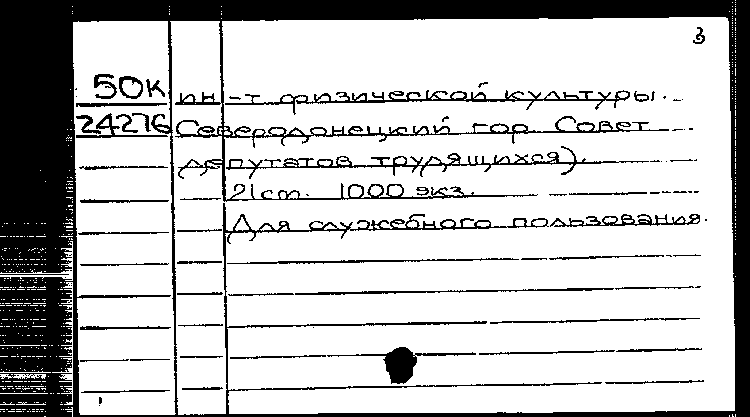 3
50к ин-т физической культуры.
24276 Северодонецкий гор. Совет
депутатов трудящихся).
21 cm. 1000 экз.
Для служебного пользования.